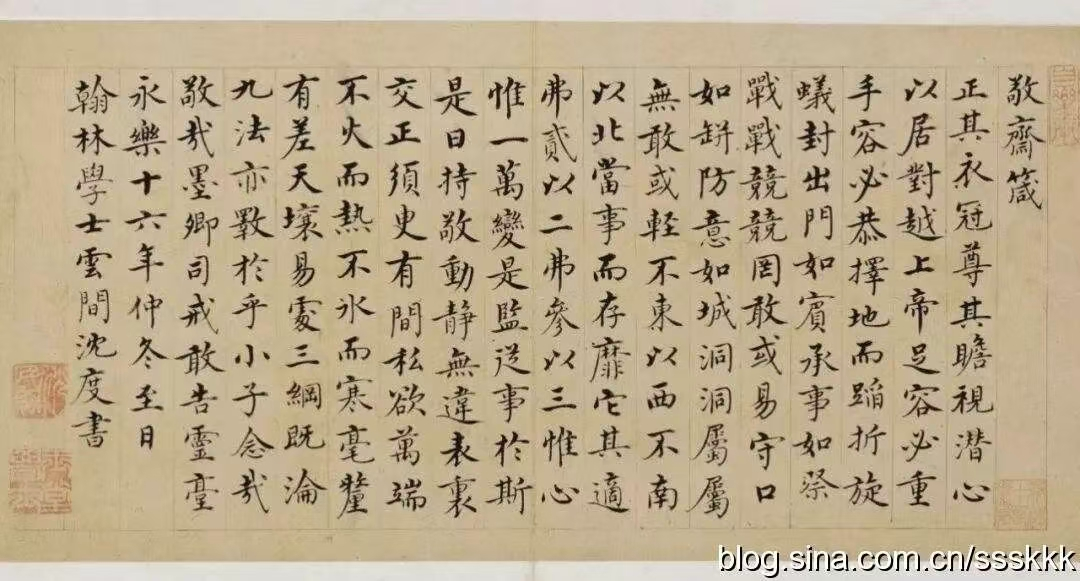 敬齋箴
正其衣冠尊其瞻視潛心
以居對越上帝足容必重
手容必恭擇地而蹈折旋
蟻封出門如賓承事如祭
戰戰兢兢罔敢或易守口
如缾防意如城洞洞屬屬
無敢或輕不東以西不南
以北當事而存靡它其適
弗貳以二弗參以三惟心
惟一萬變是監從事於斯
是曰持敬動靜無違表裏
交正須臾有間私欲萬端
不火而熱不氷而寒毫釐
有差天壤易處三綱既淪
九法亦斁於乎小子念哉
敬哉墨卿司戒敢告靈臺
永樂十六年仲冬至日
翰林學士雲間沈度書
blog.sina.com.cn/ssskkk